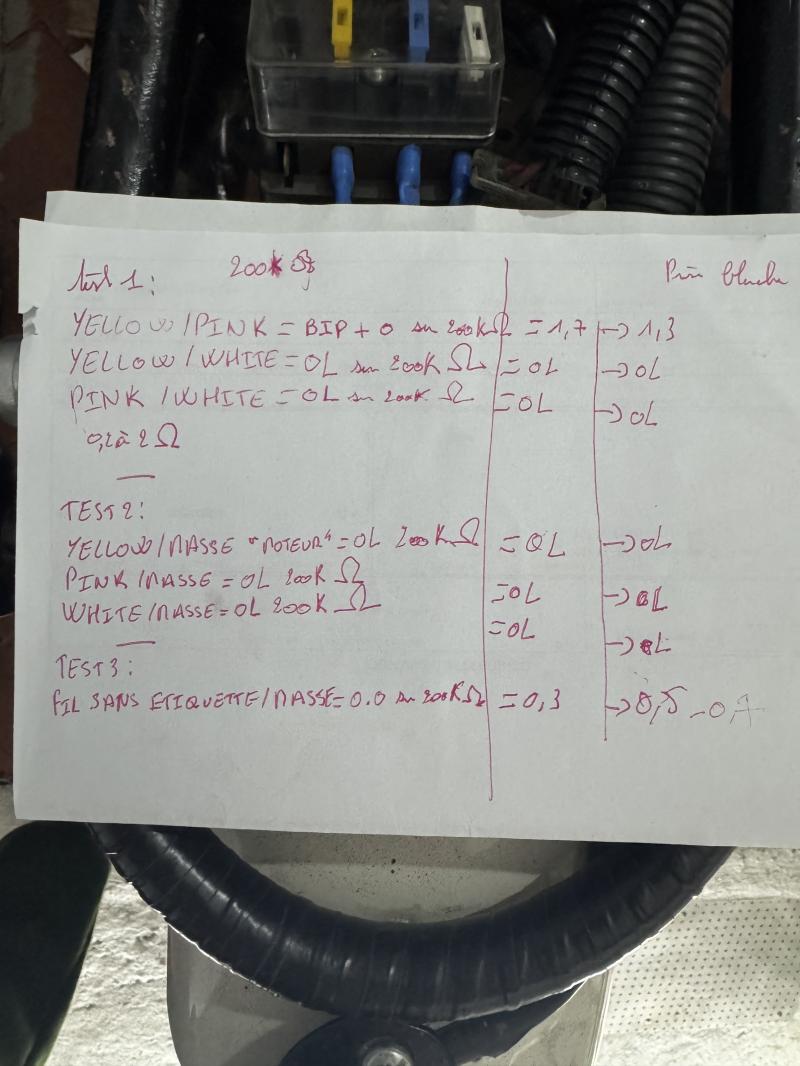 test 1: 200k Ω Prise blanche
YELLOW/PINK = BIP + 0 sur 200KΩ = 1,7 → 1,3
YELLOW/WHITE = OL sur 200KΩ = OL → OL
PINK/WHITE = OL sur 200K Ω = OL → OL
0,2 à 2Ω
TEST 2:
YELLOW/MASSE "MOTEUR" = OL 200KΩ = OL → OL
PINK/MASSE = OL 200K Ω = OL → OL
WHITE/MASSE = OL 200K Ω = OL → OL
TEST 3:
FIL SANS ETIQUETTE/MASSE = 0.0 sur 200KΩ = 0,3 → 0,5 -